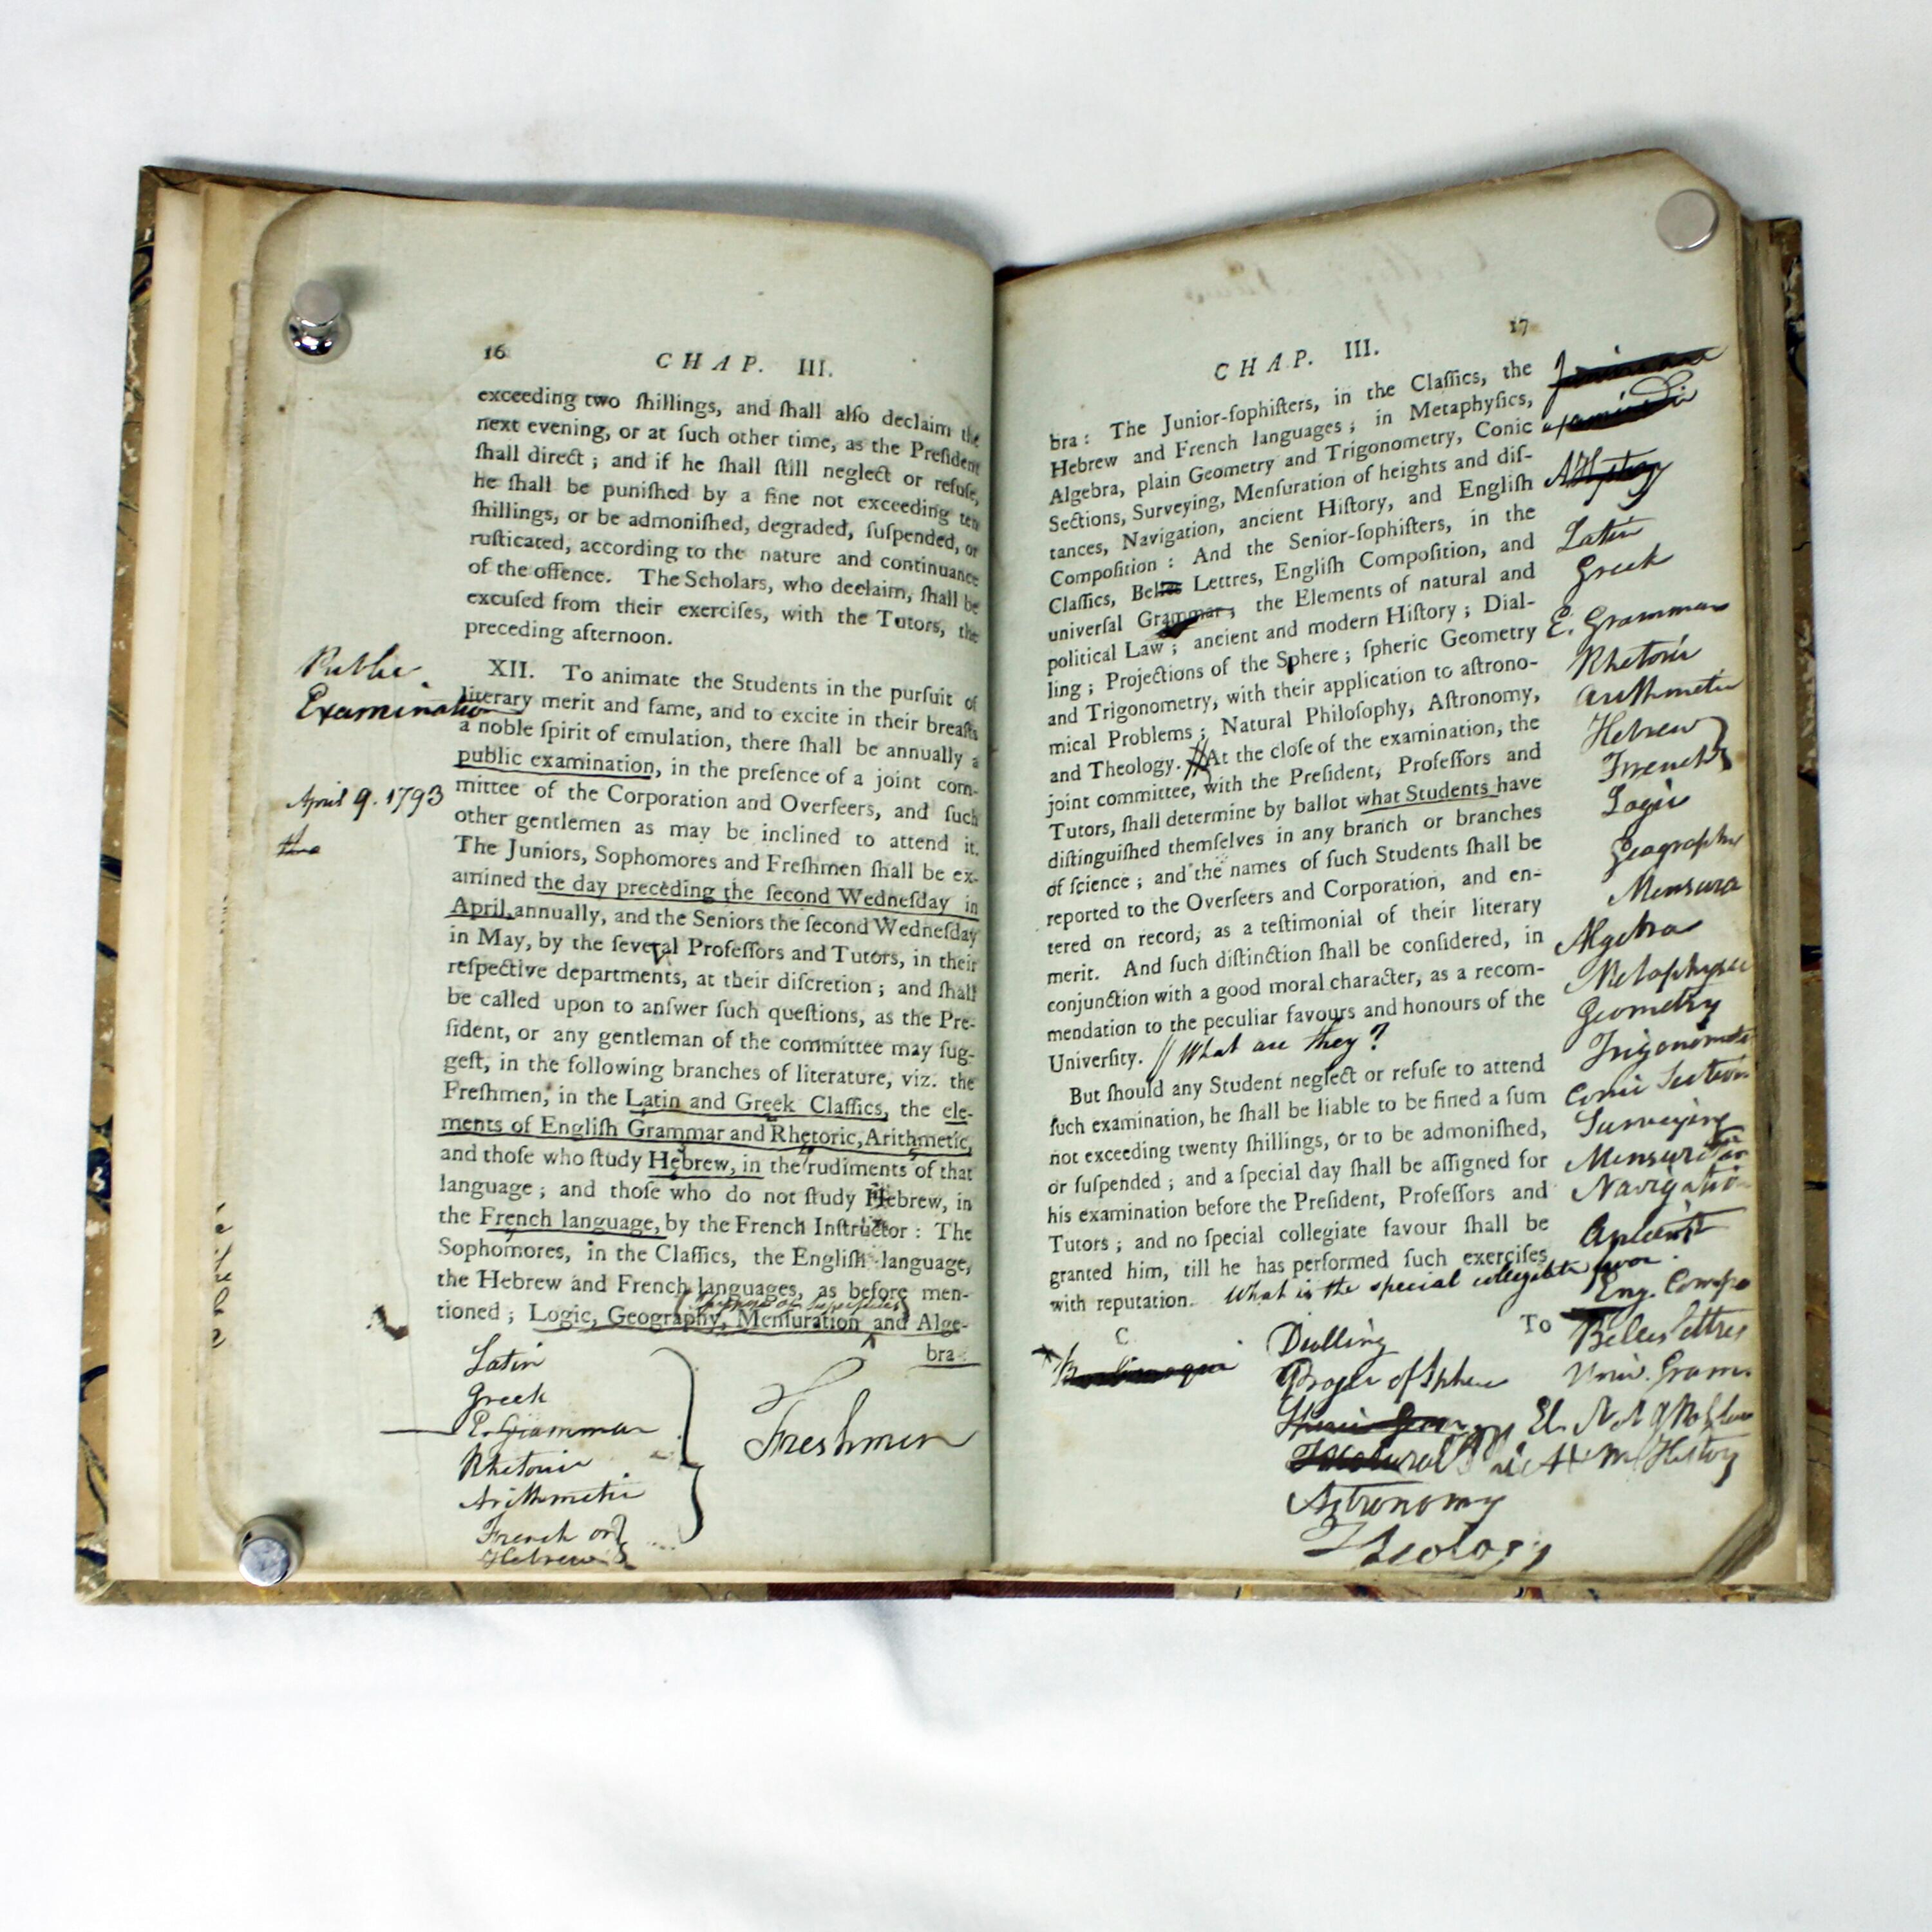 16
CHAP. III.
exceeding two ſhillings, and ſhall alſo declaim the
next evening, or at ſuch other time, as the Preſident
ſhall direct ; and if he ſhall ſtill neglect or refuſe,
he ſhall be puniſhed by a fine not exceeding ten
ſhillings, or be admoniſhed, degraded, ſuſpended, or
ruſticated, according to the nature and continuance
of the offence. The Scholars, who declaim, ſhall be
excuſed from their exerciſes, with the Tutors, the
preceding afternoon.
Public
Examination
XII. To animate the Students in the purſuit of
literary merit and fame, and to excite in their breaſts
a noble ſpirit of emulation, there ſhall be annually a
public examination, in the preſence of a joint com-
April 9. 1793
mittee of the Corporation and Overſeers, and ſuch
other gentlemen as may be inclined to attend it.
The Juniors, Sophomores and Freſhmen ſhall be ex-
amined the day preceding the ſecond Wedneſday in
April, annually, and the Seniors the ſecond Wedneſday
in May, by the ſeveral Profeſſors and Tutors, in their
reſpective departments, at their diſcretion ; and ſhall
be called upon to anſwer ſuch queſtions, as the Pre-
ſident, or any gentleman of the committee may ſug-
geſt, in the following branches of literature, viz. the
Freſhmen, in the Latin and Greek Claſſics, the ele-
ments of Engliſh Grammar and Rhetoric, Arithmetic,
and thoſe who ſtudy Hebrew, in the rudiments of that
language ; and thoſe who do not ſtudy Hebrew, in
the French language, by the French Inſtructor : The
Sophomores, in the Claſſics, the Engliſh language,
the Hebrew and French languages, as before men-
tioned ; Logic, Geography, Menſuration and Alge-
bra :
Latin
Greek
E. Grammar
Rhetoric
Arithmetic
French or
Hebrew
Freshmen
17
CHAP. III.
bra : The Junior-ſophiſters, in the Claſſics, the
Hebrew and French languages ; in Metaphyſics,
Algebra, plain Geometry and Trigonometry, Conic
Sections, Surveying, Menſuration of heights and diſ-
tances, Navigation, ancient Hiſtory, and Engliſh
Compoſition : And the Senior-ſophiſters, in the
Claſſics, Belles Lettres, Engliſh Compoſition, and
univerſal Grammar ; the Elements of natural and
political Law ; ancient and modern Hiſtory ; Dial-
ling ; Projections of the Sphere ; ſpheric Geometry
and Trigonometry, with their application to aſtrono-
mical Problems ; Natural Philoſophy, Aſtronomy,
and Theology. At the cloſe of the examination, the
joint committee, with the Preſident, Profeſſors and
Tutors, ſhall determine by ballot what Students have
diſtinguiſhed themſelves in any branch or branches
of ſcience ; and the names of ſuch Students ſhall be
reported to the Overſeers and Corporation, and en-
tered on record, as a teſtimonial of their literary
merit. And ſuch diſtinction ſhall be conſidered, in
conjunction with a good moral character, as a recom-
mendation to the peculiar favours and honours of the
Univerſity. // What are they ?
But ſhould any Student neglect or refuſe to attend
ſuch examination, he ſhall be liable to be fined a ſum
not exceeding twenty ſhillings, or to be admoniſhed,
or ſuſpended ; and a ſpecial day ſhall be aſſigned for
his examination before the Preſident, Profeſſors and
Tutors ; and no ſpecial collegiate favour ſhall be
granted him, till he has performed ſuch exerciſes
with reputation. What is the special collegiate favor
C
To
Latin
Greek
E. Grammar
Rhetoric
Arithmetic
Hebrew
French
Logic
Geography
Mensura
Algebra
Metaphysic
Geometry
Trigonomet
Conic Section
Surveying
Mensuration
Navigation
Ancient
Eng. Compo
Belles lettres
Univ. Gram.
El. N
A & M History
Dialling
of Sphere
Astronomy
Theology